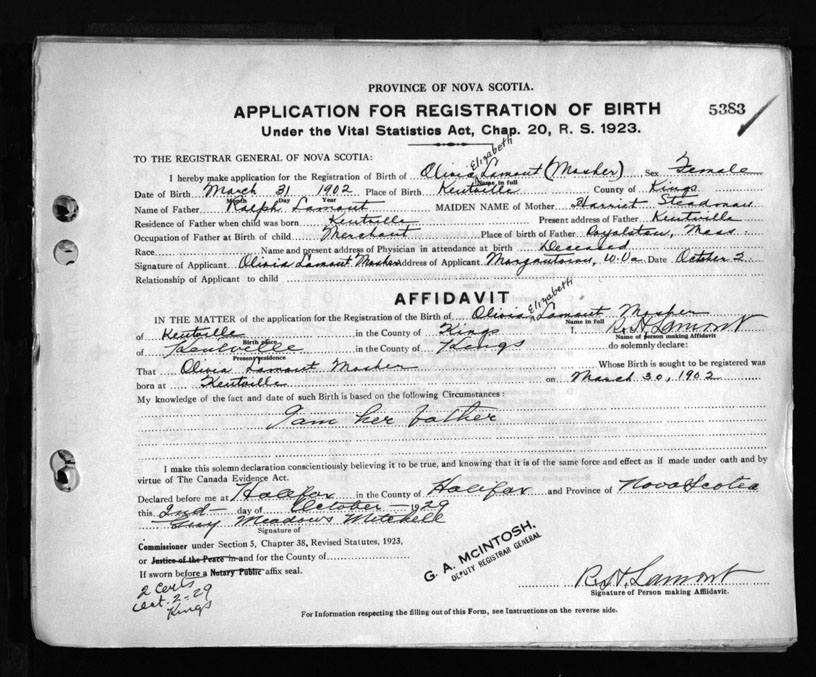 PROVINCE OF NOVA SCOTIA.
APPLICATION FOR REGISTRATION OF BIRTH 5383
Under the Vital Statistics Act, Chap. 20, R. S. 1923.
TO THE REGISTRAR GENERAL OF NOVA SCOTIA:
Elizabeth
I hereby make application for the Registration of Birth of Olivia Lamont (Mosher) Sex Female
Name in full
Date of Birth March 31 1902 Place of Birth Kentville County of Kings
Month Day Year
Name of Father Ralph Lamont MAIDEN NAME of Mother Harriet Steadman
Residence of Father when child was born Kentville Present address of Father Kentville
Occupation of Father at Birth of child Merchant Place of birth of Father Royalston, Mass.
Race Name and present address of Physician in attendance at birth Deceased
Signature of Applicant Olivia Lamont Mosher Address of Applicant Morgantown, W. Va Date October 2
Relationship of Applicant to child
AFFIDAVIT
Elizabeth
IN THE MATTER of the application for the Registration of the Birth of Olivia Lamont Mosher
Name in full
of Kentville in the County of Kings I, R. H. Lamont
Birth place Name of Person making Affidavit
of Kentville in the County of Kings do solemnly declare:
Present residence
That Olivia Lamont Mosher Whose Birth is sought to be registered was
born at Kentville on March 30, 1902
My knowledge of the fact and date of such Birth is based on the following Circumstances:
I am her father
I make this solemn declaration conscientiously believing it to be true, and knowing that it is of the same force and effect as if made under oath and by
virtue of The Canada Evidence Act.
Declared before me at Halifax in the County of Halifax and Province of Nova Scotia
this 2nd day of October 1929
Guy Meadows Mitchell
Signature of
Commissioner under Section 5, Chapter 38, Revised Statutes, 1923,
or Justice of the Peace in and for the County of
If sworn before a Notary Public affix seal.
G. A. MCINTOSH,
DEPUTY REGISTRAR GENERAL
R. H. Lamont
Signature of Person making Affidavit.
2 Certs
Oct. 2-29
Kings
For Information respecting the filling out of this Form, see Instructions on the reverse side.